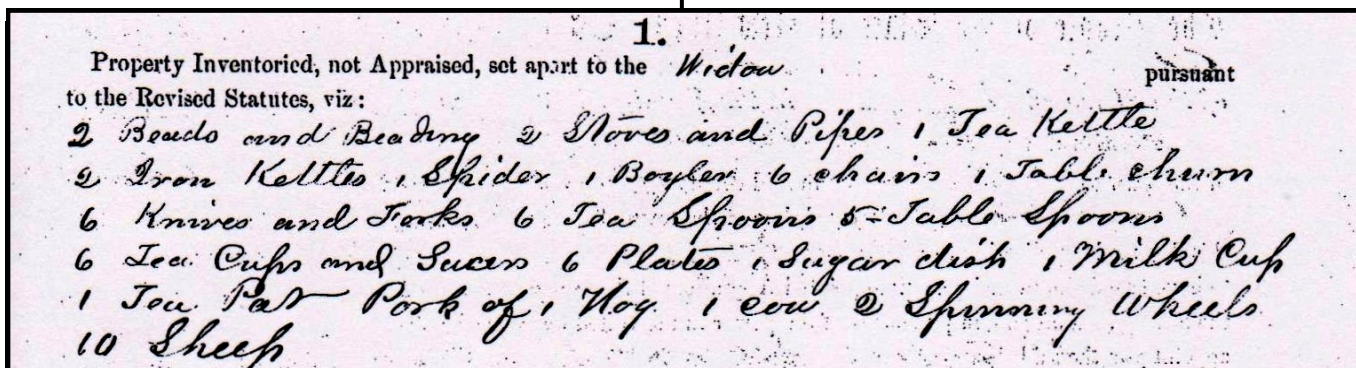 1.
Property Inventoried, not Appraised, set apart to the Widow pursuant
to the Revised Statutes, viz:
2 Beads and Beading 2 Stoves and Pipes 1 Tea Kettle
2 Iron Kettles 1 Spider 1 Boyler 6 chairs 1 Table churn
6 Knives and Forks 6 Tea Spoons 5 Table Spoons
6 Tea Cups and Sucers 6 Plates 1 Sugar dish 1 Milk Cup
1 Tea Pot Pork of 1 Hog 1 cow 2 Spinning Wheels
10 Sheep